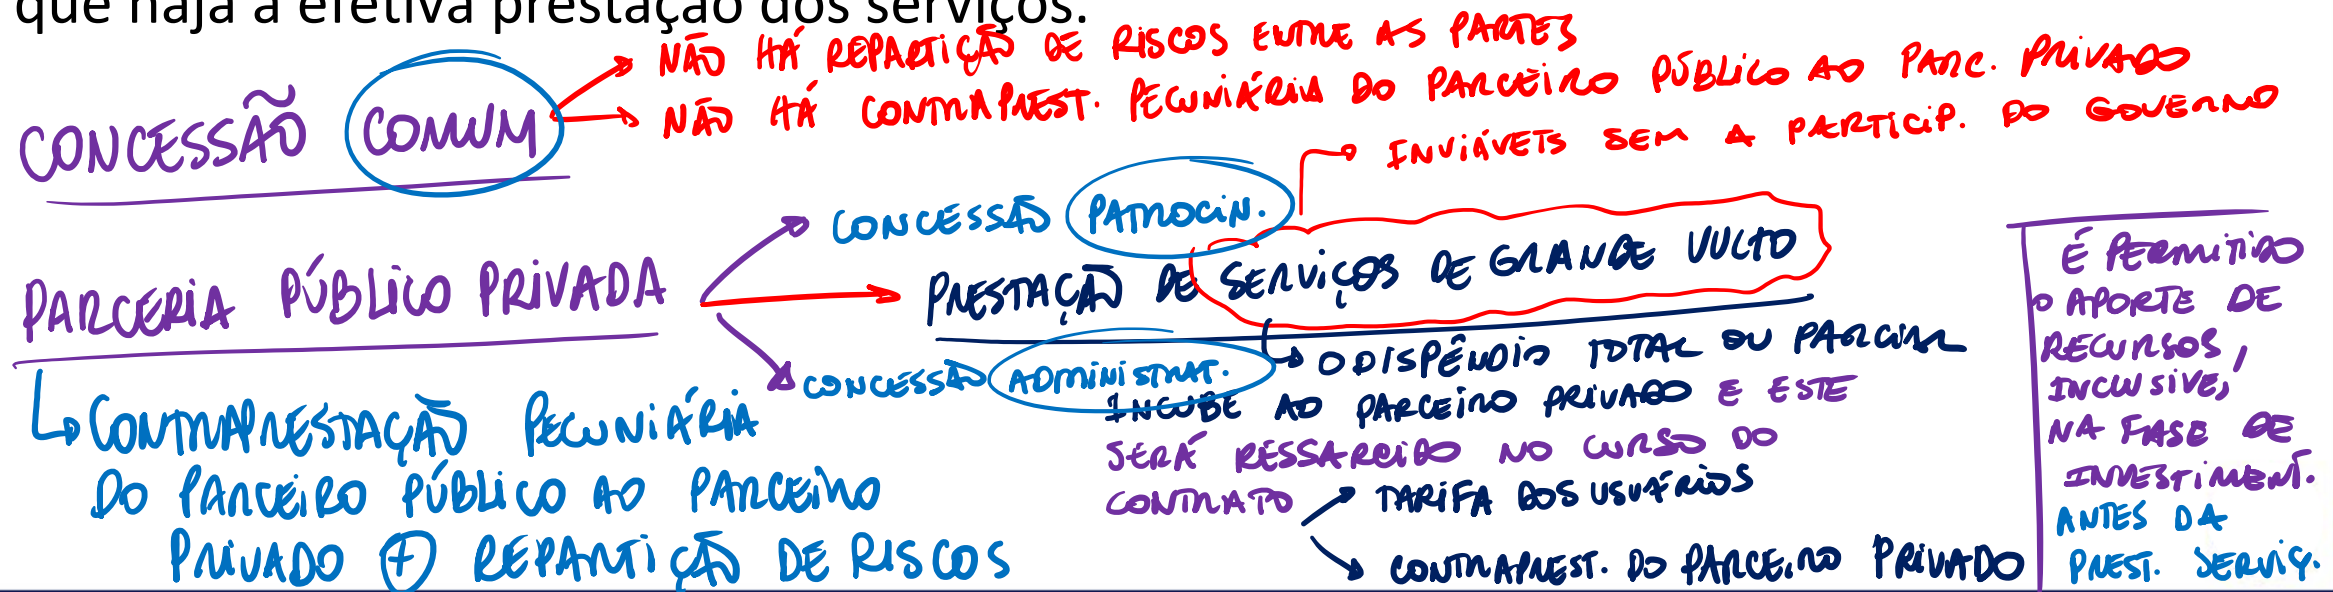 que haja a efetiva prestação dos serviços.
CONCESSÃO COMUM
NÃO HÁ REPARTIÇÃO DE RISCOS ENTRE AS PARTES
NÃO HÁ CONTRAPREST. PECUNIÁRIA DO PARCEIRO PÚBLICO AO PARC. PRIVADO
INVIÁVEIS SEM A PARTICIP. DO GOVERNO
PARCERIA PÚBLICO PRIVADA
CONCESSÃO PATROCIN.
PRESTAÇÃO DE SERVIÇOS DE GRANDE VULTO
CONCESSÃO ADMINISTRAT.
O DISPÊNDIO TOTAL OU PARCIAL
INCUBE AO PARCEIRO PRIVADO E ESTE
SERÁ RESSARCIDO NO CURSO DO
CONTRATO
TARIFA DOS USUÁRIOS
CONTRAPREST. DO PARCEIRO PRIVADO
CONTRAPRESTAÇÃO PECUNIÁRIA
DO PARCEIRO PÚBLICO AO PARCEIRO
PRIVADO + REPARTIÇÃO DE RISCOS
É PERMITIDO
O APORTE DE
RECURSOS,
INCLUSIVE,
NA FASE DE
INVESTIMENT.
ANTES DA
PREST. SERVIÇ.